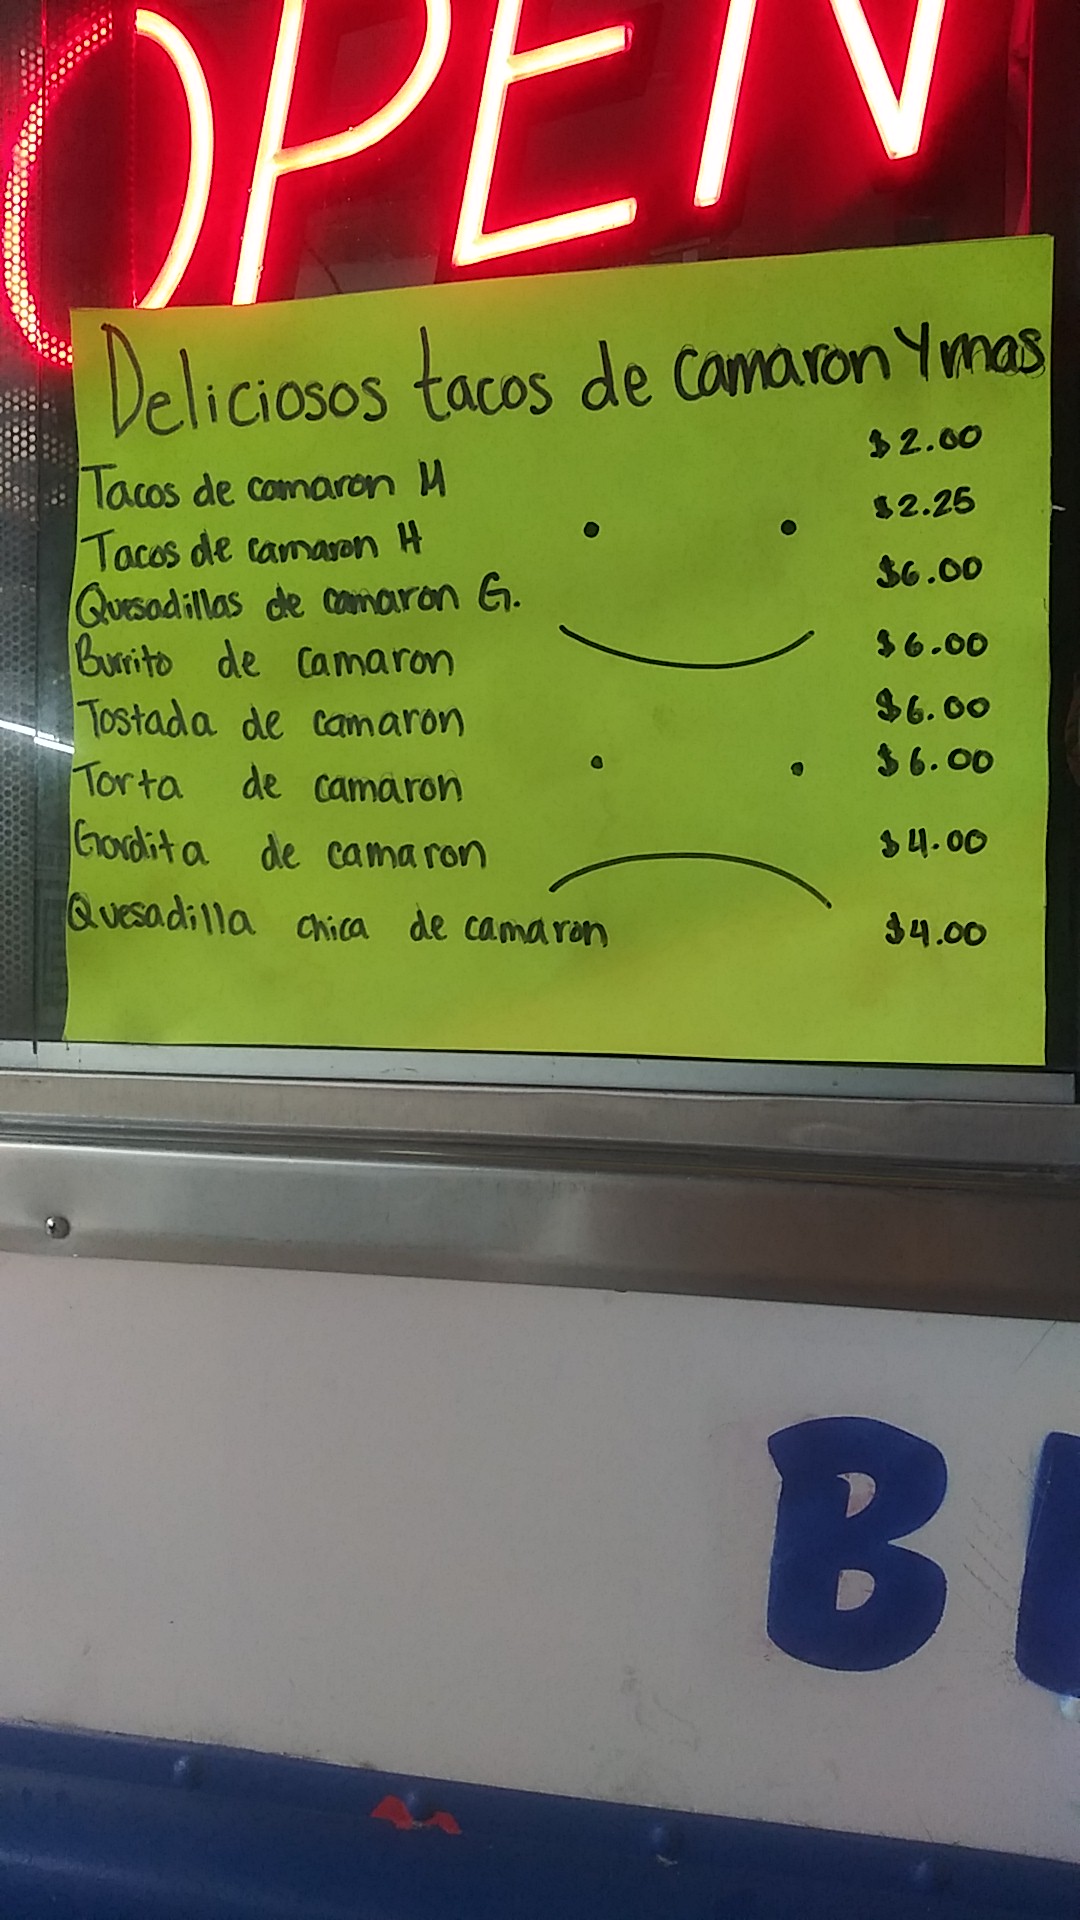 OPEN
Deliciosos tacos de camaron Y mas
Tacos de camaron M $2.00
Tacos de camaron H $2.25
Quesadillas de camaron G. $6.00
Burrito de camaron $6.00
Tostada de camaron $6.00
Torta de camaron $6.00
Gordita de camaron $4.00
Quesadilla chica de camaron $4.00
B